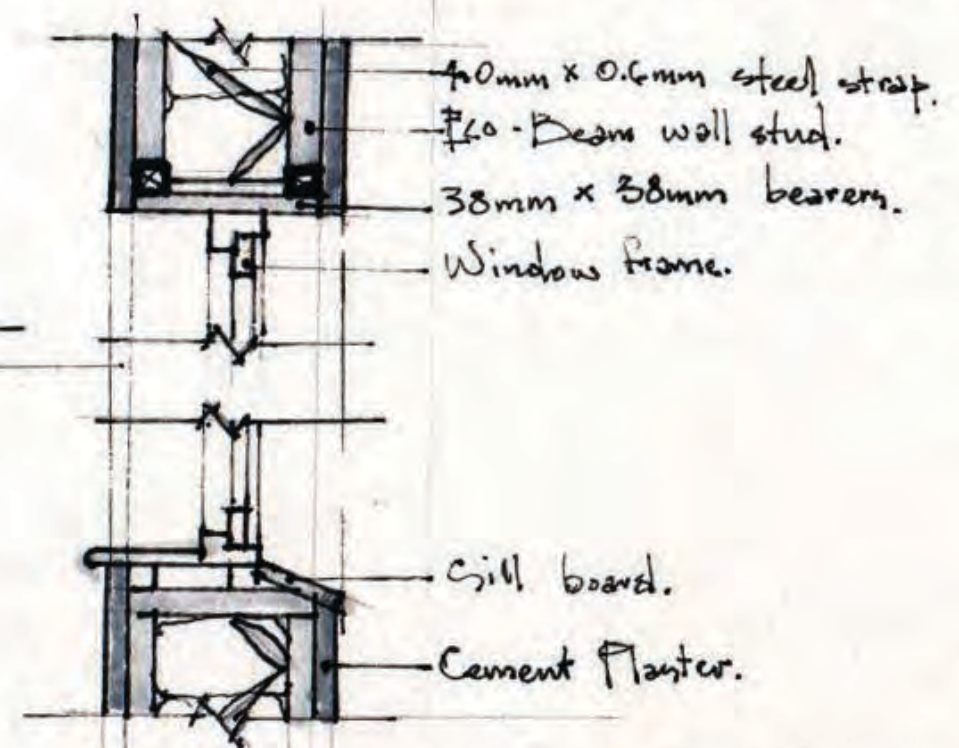 40mm x 0.6mm steel strap.
Eco-Beam wall stud.
38mm x 38mm bearers.
Window frame.
Sill board.
Cement Plaster.